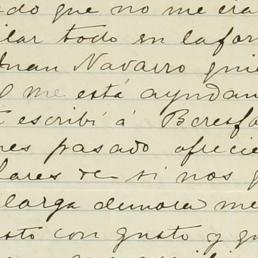 do que no me era
ilar todo en la for
Juan Navarro qui
me está ayudan
escribí á Beresfo
mes pasado ofrecie
lares de si nos
larga demora me
sto con gusto y gu